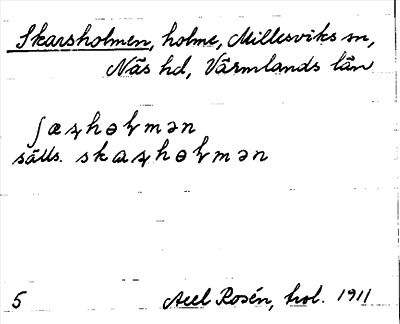 Skarsholmen, holme, Millesviks sn,
Näs hd, Värmlands län
sälls.
5 Axel Rosén, kol. 1911